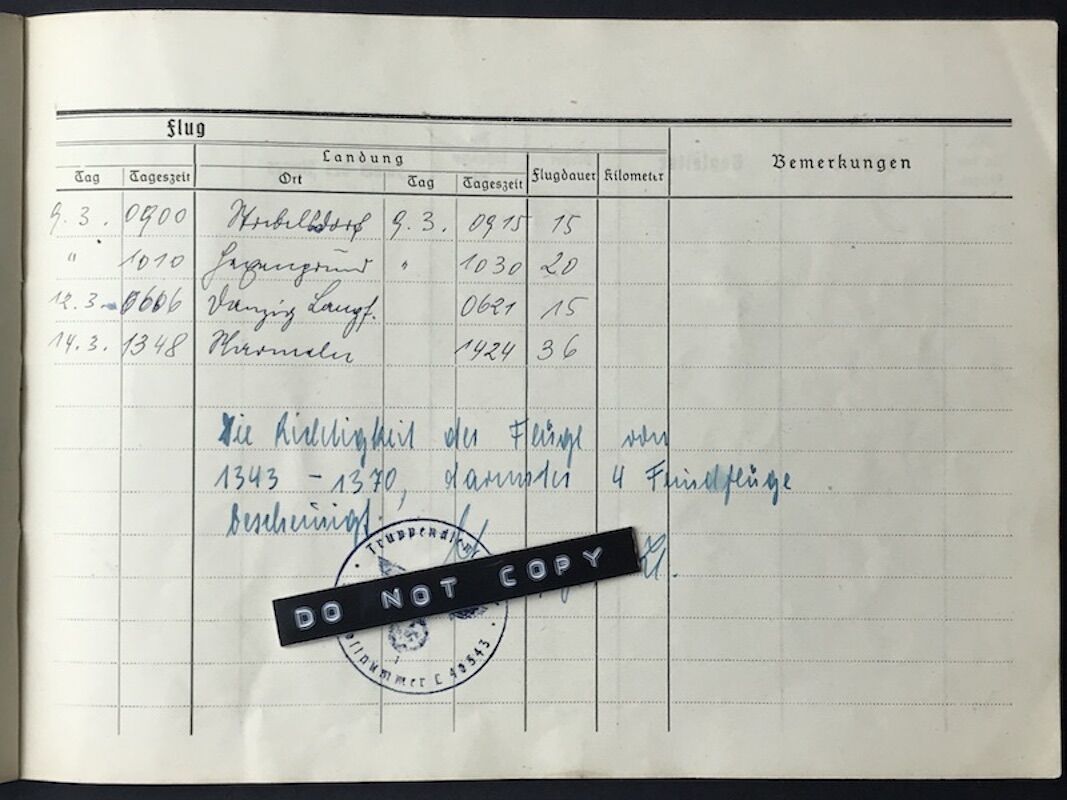 Flug
Landung
Bemerkungen
Tag Tageszeit Ort Tag Tageszeit Flugdauer Kilometer
9. 3. 0900 9. 3. 0915 15
" 1010 Hexengrund " 1030 20
12. 3. 0606 Danzig Langf. 0621 15
14. 3. 1348 1424 36
Die Richtigkeit der Flüge von
1343 - 1370, darunter 4 Feindflüge
bescheinigt:
Truppendien
DO NOT COPY
ostnummer L 40543